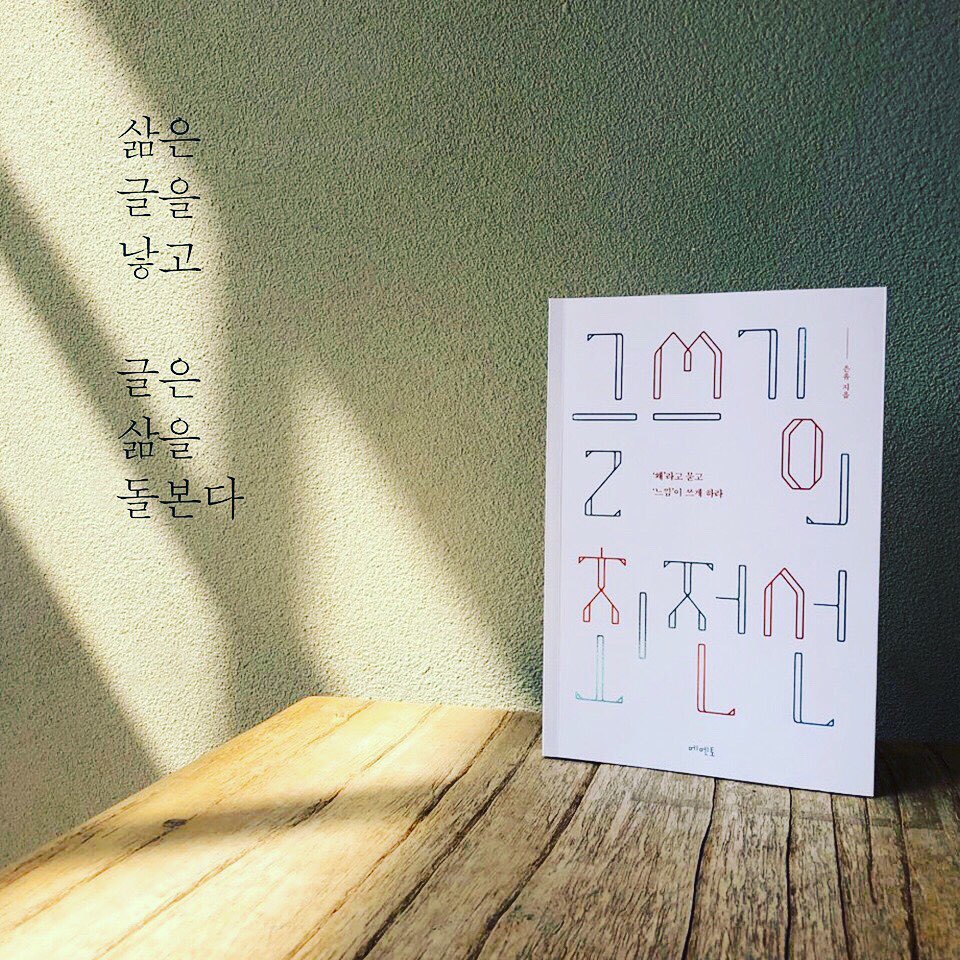 삶은
글을
낳고
글은
삶을
돌본다
글쓰기
의
최전선
은유 지음
‘왜’라고 묻고
‘느낌’이 쓰게 하라
메멘토